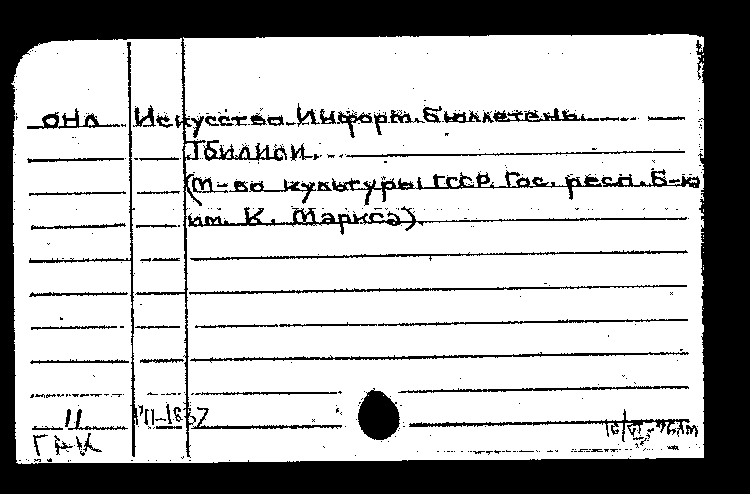 ОНЛ Искусство. Информ. бюллетень.
Тбилиси.
(М-во культуры ГССР. Гос. респ. Б-ка
им. К. Маркса).
11 П11-1837
ГАК